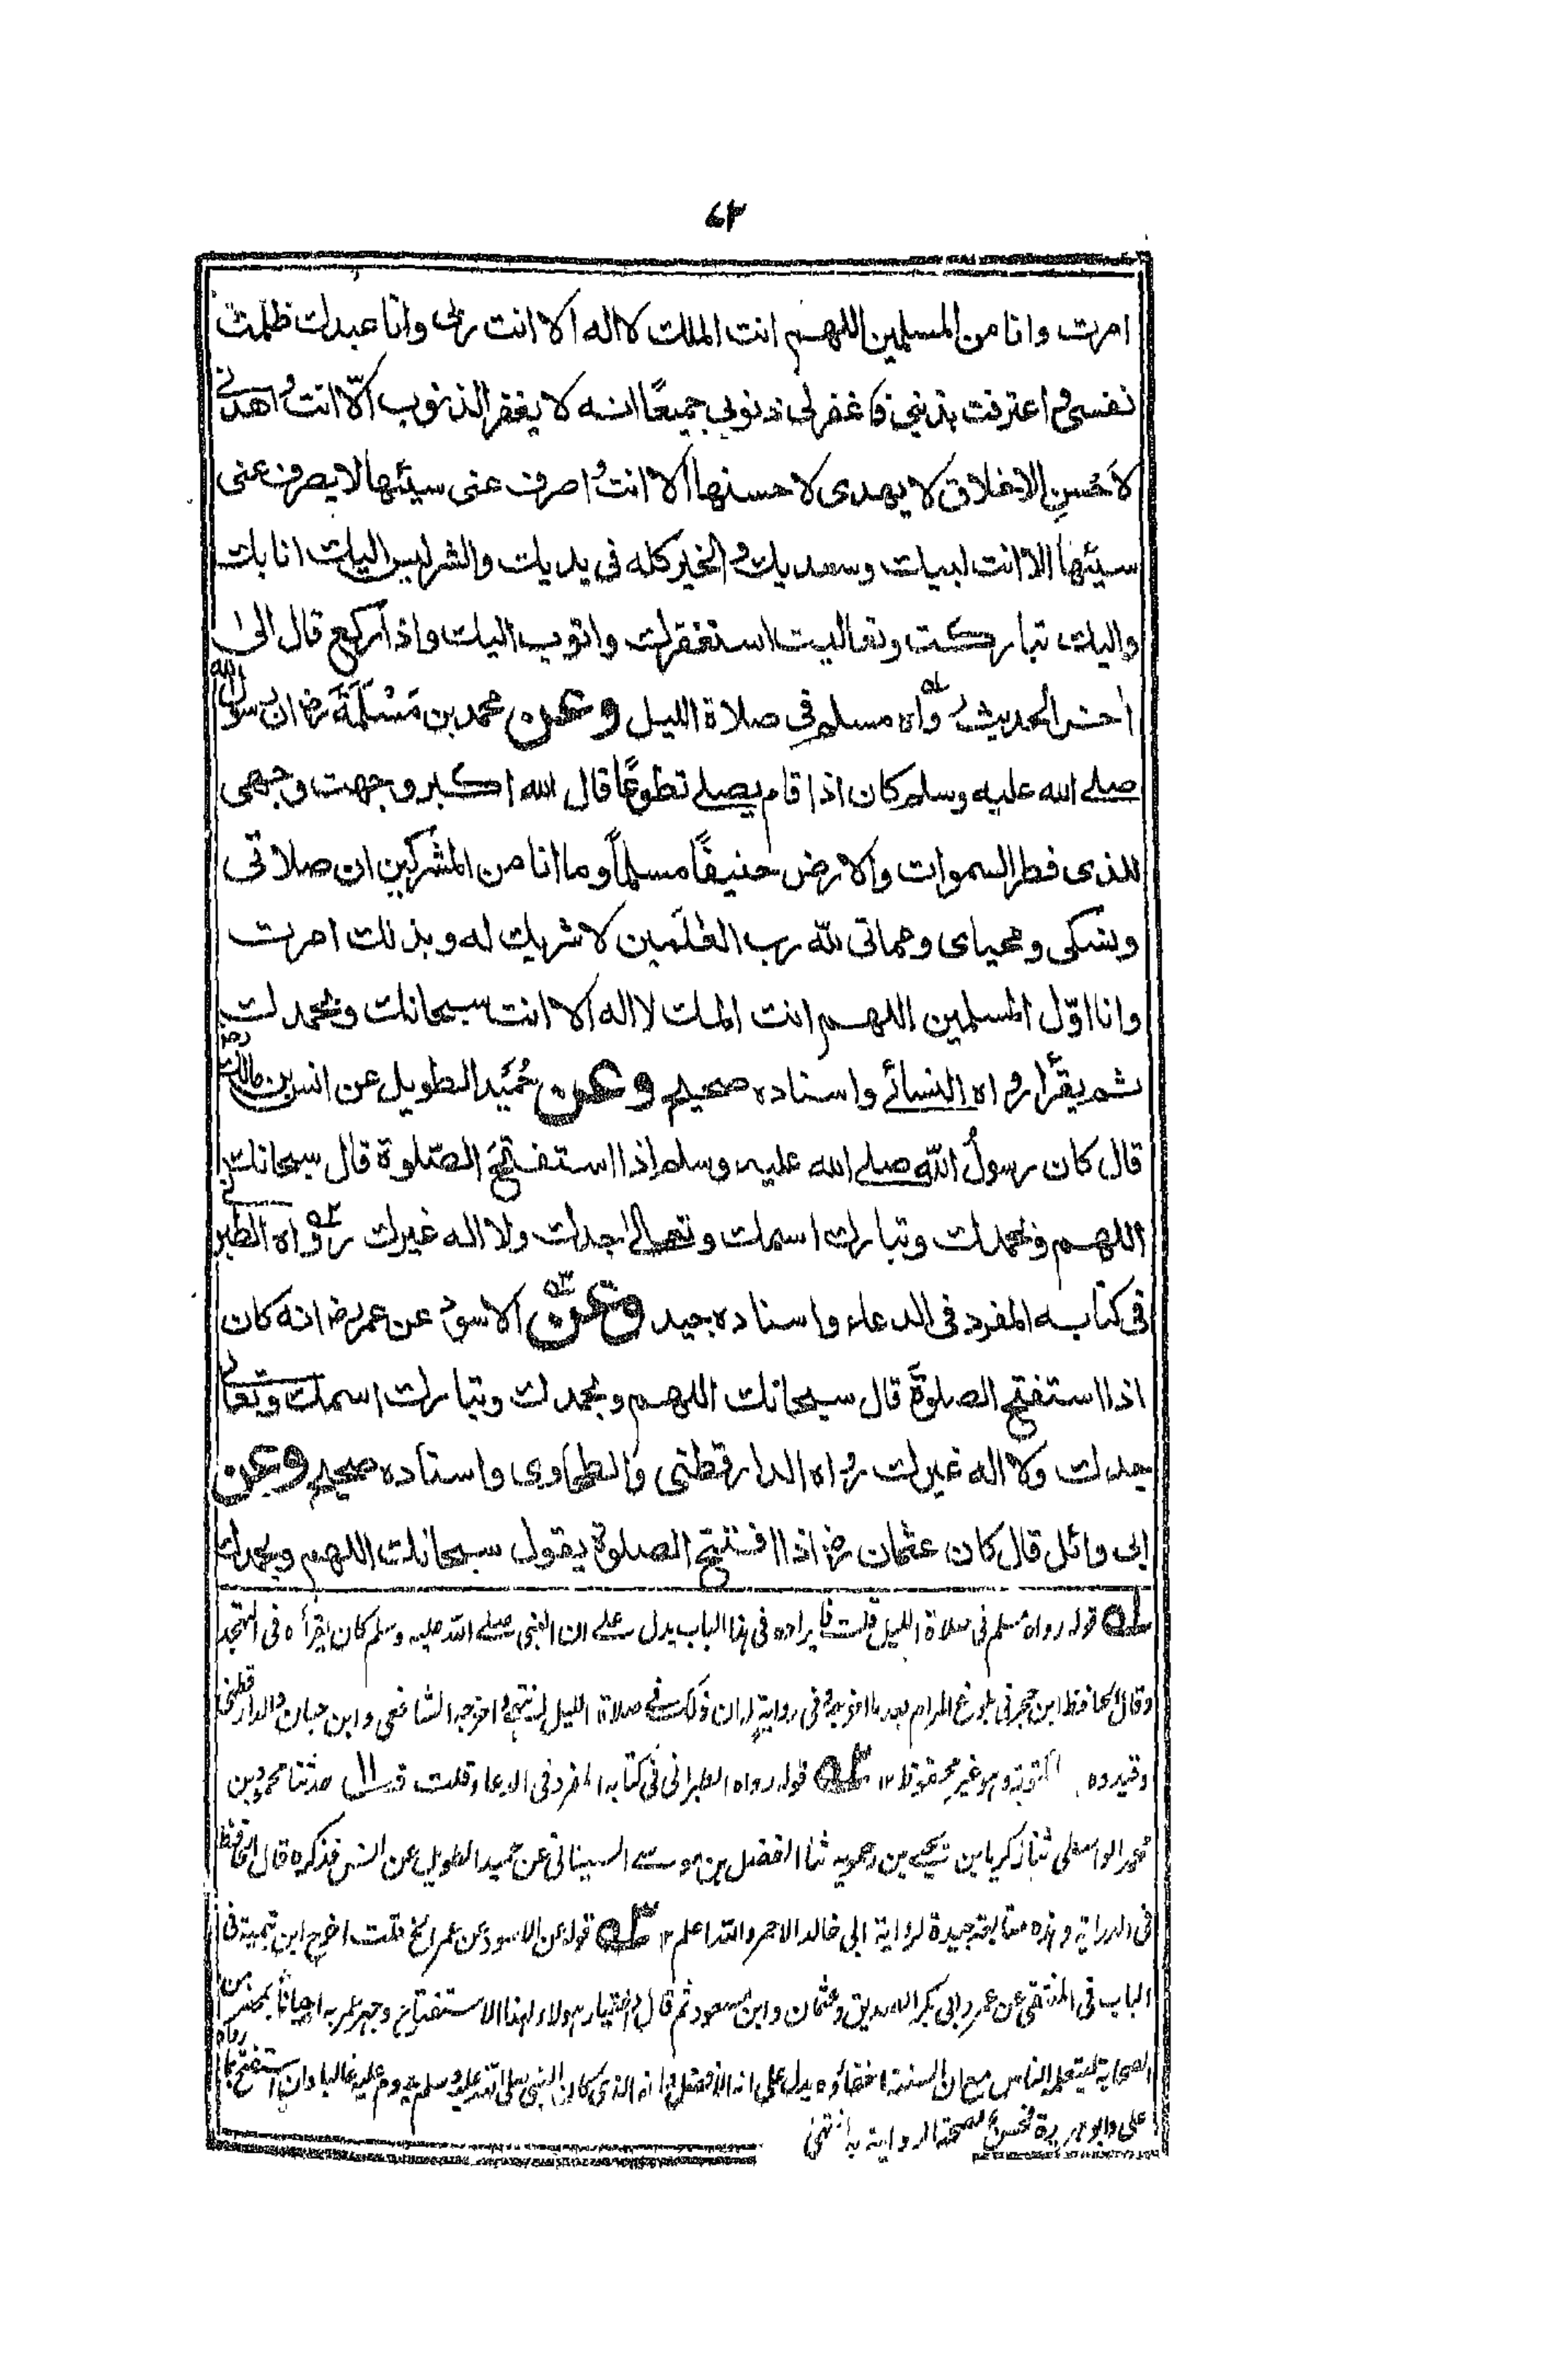 ٧٢
امرت وانا من المسلمين اللهم انت الملك لا اله الا انت ربى وانا عبدك ظلمت
نفسى و اعترفت بذنبى فاغفرلى ذنوبى جميعًا انه لا يغفر الذنوب الّا انت و اهدنى
لاَحْسنِ الاخلاق لا يهدى لاحسنها الا انت و اصرف عنى سيئها لا يصرف عنى
سيئها الا انت لبيك وسعديك و الخير كله فى يديك والشر ليس اليك انا بك
واليك تباركت وتعاليت استغفرك واتوب اليك واذا ركع قال الىٰ
اخر الحديث رواه ١ه مسلم فى صلاة الليل وعن محمد بن مَسْلَمَةَ رض ان رسول الله
صلى الله عليه وسلم كان اذا قام يصلے تطوعًا قال الله اكبر وجهت وجهى
للذى فطر السموات والارض حنيفًا مسلمًا وما انا من المشركين ان صلاتى
ونسكى ومحياى ومماتى للّه رب العٰلَمين لا شريك له وبذلك امرت
وانا اوّل المسلمين اللهم انت الملك لا اله الا انت سبحانك وبحمدك
ثم يقرأ رواه النسائے واسناده صحيح وعن حُمَيد الطويل عن انس بن مالك رض
قال كان رسولُ اللّه صلے الله عليه وسلم اذا استفتحَ الصّلوة قال سبحانك
اللهم وبحمدك وتبارك اسمك وتعالىٰ جدك ولا اله غيرك رواه ٢ه الطبرانى
فى كتابه المفرد فى الدعاء واسناده جيد وعن ٣ه الاسود عن عمر رض انه كان
اذا استفتح الصلوة قال سبحانك اللهم وبحمدك وتبارك اسمك وتعالى
جدك ولا اله غيرك رواه الدارقطنى والطحاوى واسناده صحيح وعن
ابى وائل قال كان عثمان رض اذا افتتح الصلوة يقول سبحانك اللهم وبحمدك
١ه قوله رواه مسلم فى صلاة الليل قلت فايراده فى هذا الباب يدل على ان النبى صلے الله عليه وسلم كان يقرأه فى التهجد
وقال الحافظ ابن حجر فى بلوغ المرام بعد ما اخرجه و فى رواية له ان ذلك فى صلاة الليل انتهى و اخرجه الشافعى وابن حبان والدارقطنى
وقيدوه المكتوبة وهو غير محفوظ ١٢ ٢ه قوله رواه الطبرانى فى كتابه المفرد فى الدعاء قلت قال حدثنا محمود بن
محمد الواسطى ثنا زكريا بن يحيى بن رحمويه ثنا الفضل بن موسے السينانى عن حميد الطويل عن انس فذكره قال الحافظ
فى الدراية وهذه متابعة جيدة لرواية ابى خالد الاحمر والله اعلم ١٢ ٣ه قوله عن الاسود عن عمر الخ قلت اخرج ابن تيمية فى
الباب فى المنتقى عن عمر وابى بكر الصديق وعثمان وابن مسعود ثم قال و اختيار هولاء لهذا الاستفتاح وجهر عمر به احيانًا بمحضر من
الصحابة ليتعلم الناس مع ان السنة اخفاؤه يدل على انه الافضل وانه الذى كان النبى صلى الله عليه وسلم يداوم عليه غالبا وان استفتح بما رواه
على وابو هريرة فحسن لصحة الرواية به انتهىٰ